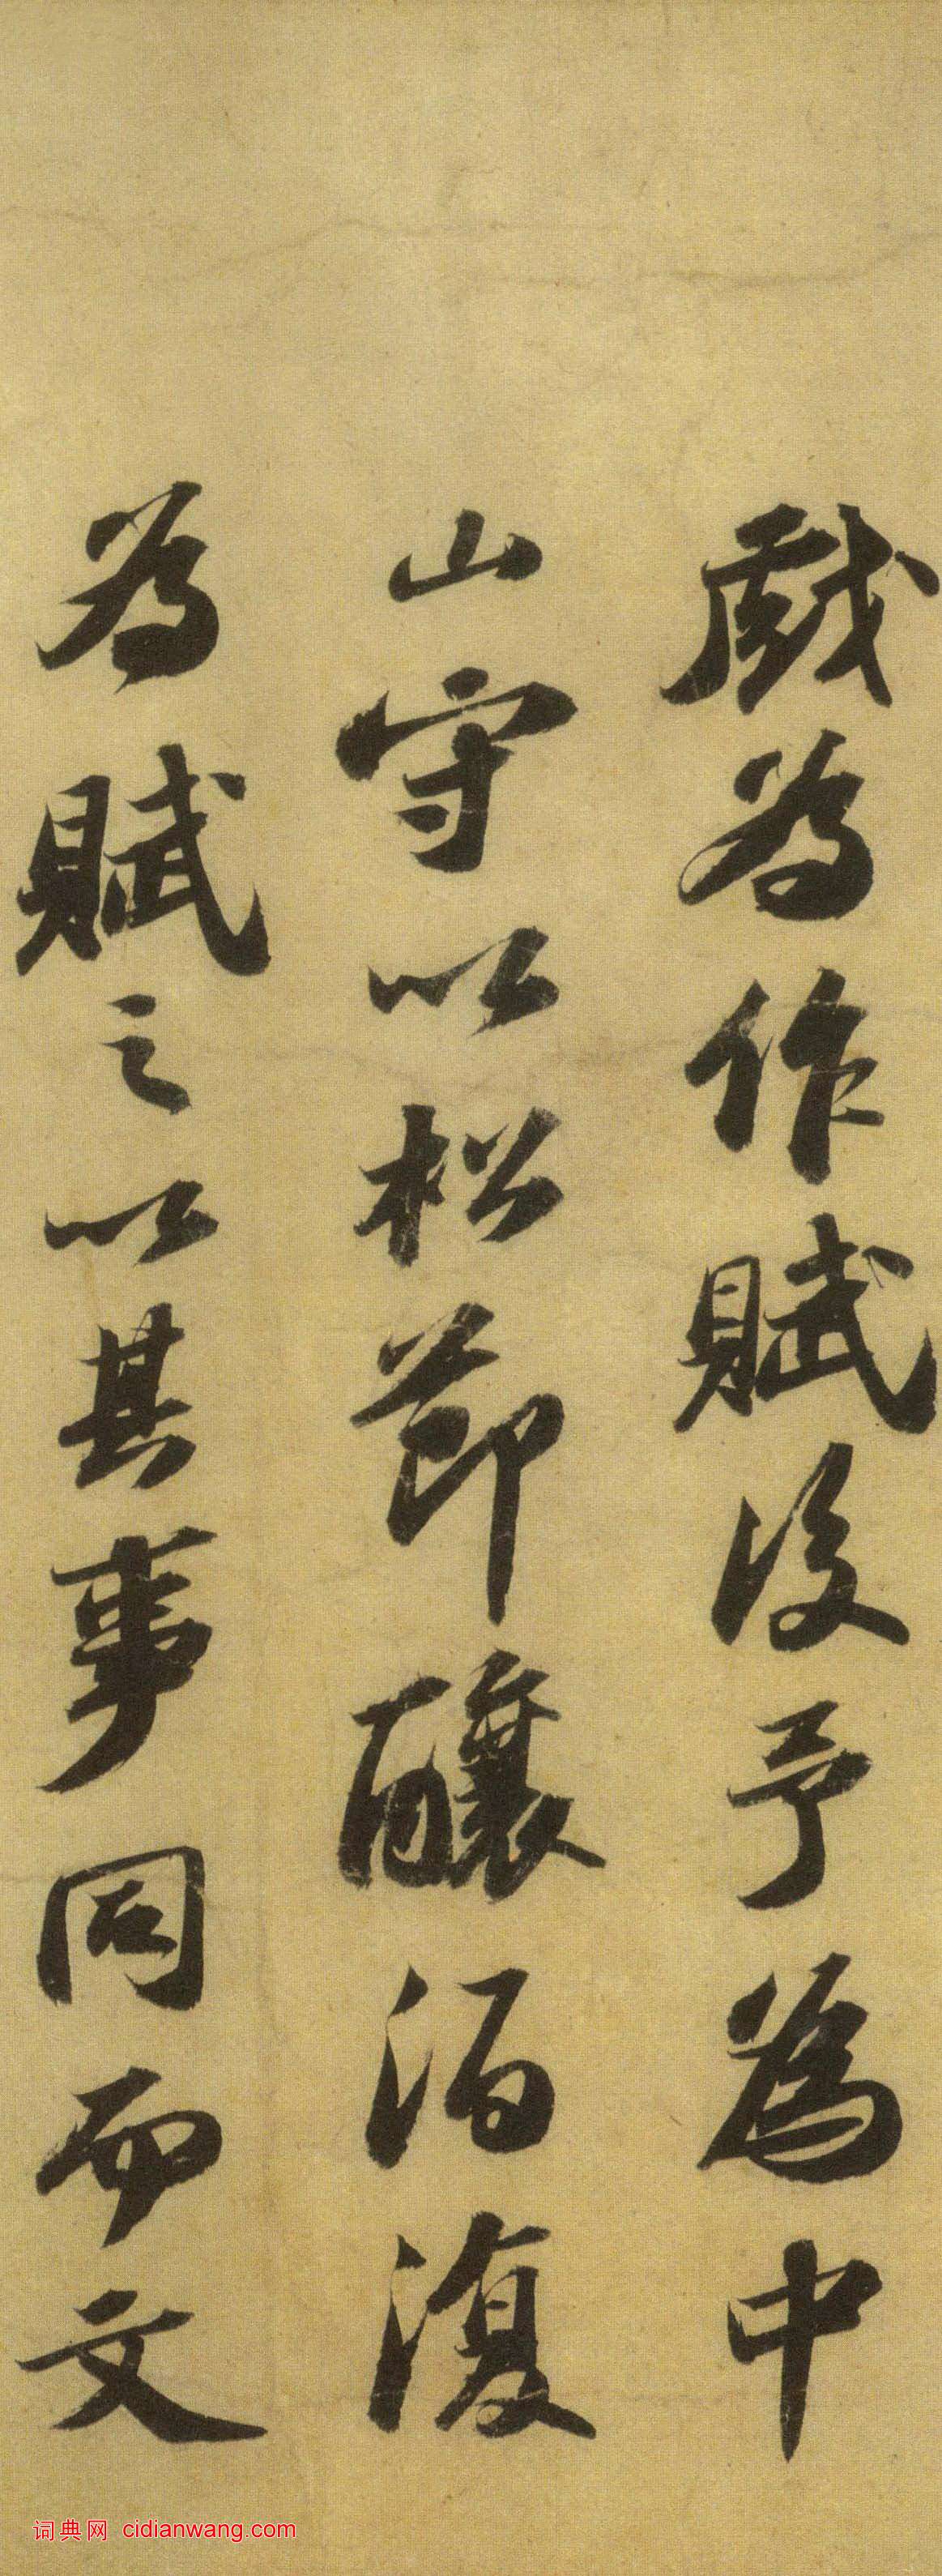 戲為作賦後予為中
山守以松節釀酒復
為賦之以其事同而文
词典网 cidianwang.com